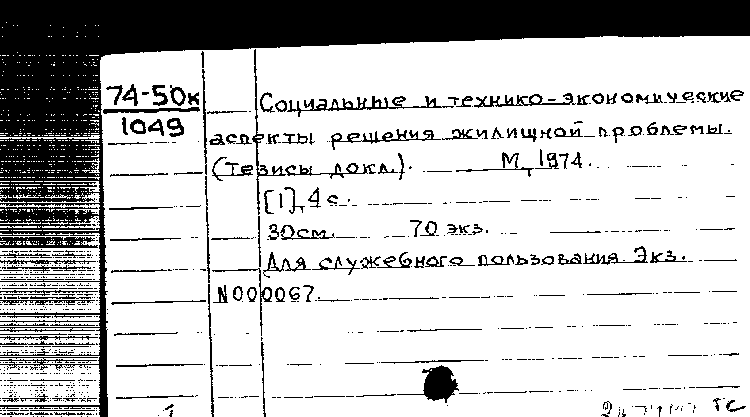 74-50к
1049
Социальные и технико-экономические
аспекты решения жилищной проблемы.
(Тезисы докл.). М., 1974.
[1], 4 с.
30см. 70 экз.
Для служебного пользования. Экз.
N000067.